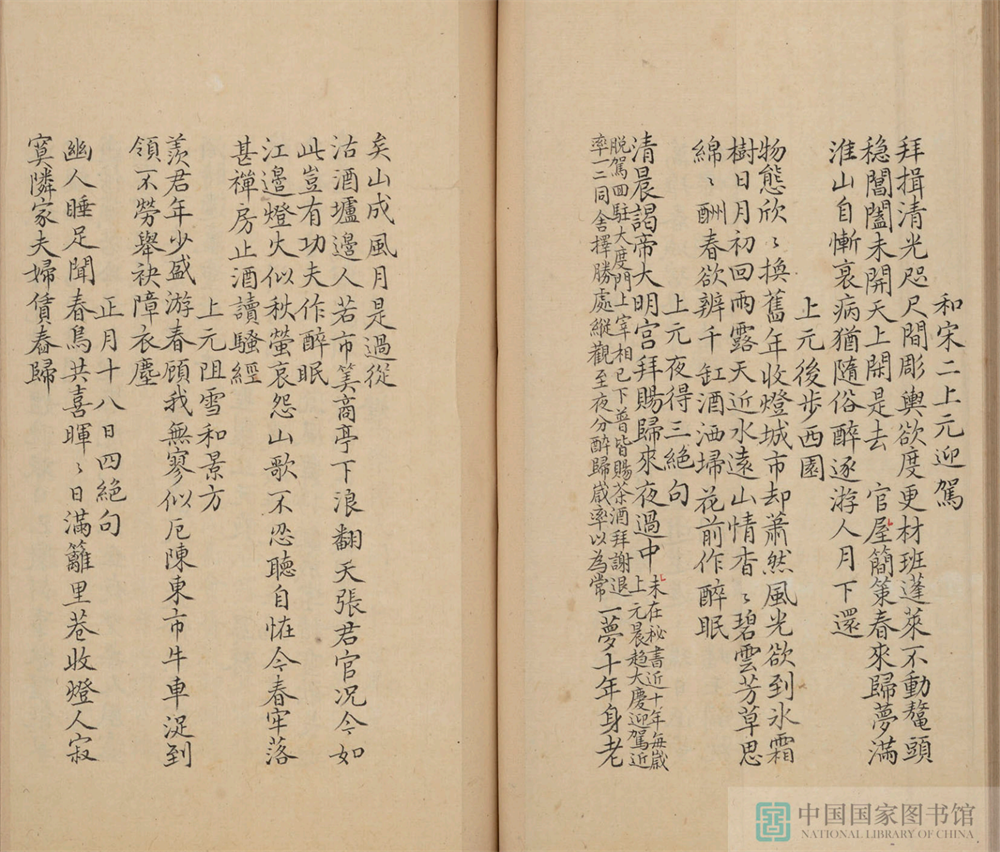 和宋二上元迎駕
拜揖清光咫尺間彫輿欲度更材班蓬萊不動鼇頭
穏閶闔未開天上閑是去官屋簡策春來歸夢滿
淮山自慚衰病猶隨俗醉逐游人月下還
上元後步西園
物態欣〻換舊年收燈城市却蕭然風光欲到氷霜
樹日月初回雨露天近水遠山情杳〻碧雲芳草思
綿〻酬春欲辨千缸酒洒埽花前作醉眠
上元夜得三絕句
清晨謁帝大明宮拜賜歸來夜過中未在秘書近十年每歲
上元晨趍大慶迎駕近
脫駕回駐大度門上宰相已下普皆賜茶酒拜謝退
率一二同舍擇勝處縱觀至夜分醉歸歲率以為常一夢十年身老
矣山成風月是過從
沽酒壚邊人若市筭商亭下浪翻天張君官况今如
此豈有功夫作醉眠
江邊燈火似秋螢哀怨山歌不忍聽自恠今春牢落
甚禪房止酒讀騷經
上元阻雪和景方
羨君年少盛游春顧我無寥似厄陳東市牛車浞到
領不勞舉袂障衣塵
正月十八日四絕句
幽人睡足聞春鳥共喜暉〻日滿籬里巷收燈人寂
寞隣家夫婦賃舂歸
中国国家图书馆
NATIONAL LIBRARY OF CHINA